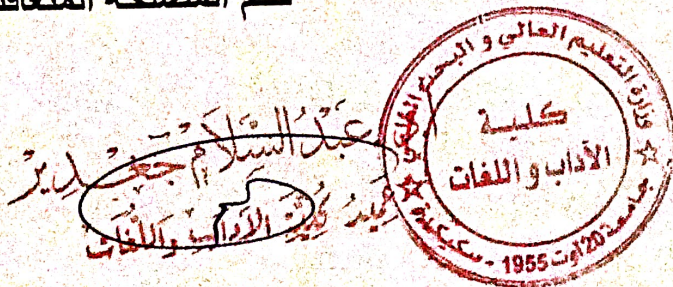 عبد السلام جغدير
عميد كلية الآداب واللغات
وزارة التعليم العالي و البحث العلمي
كلية
الآداب و اللغات
جامعة 20 أوت 1955 - سكيكدة